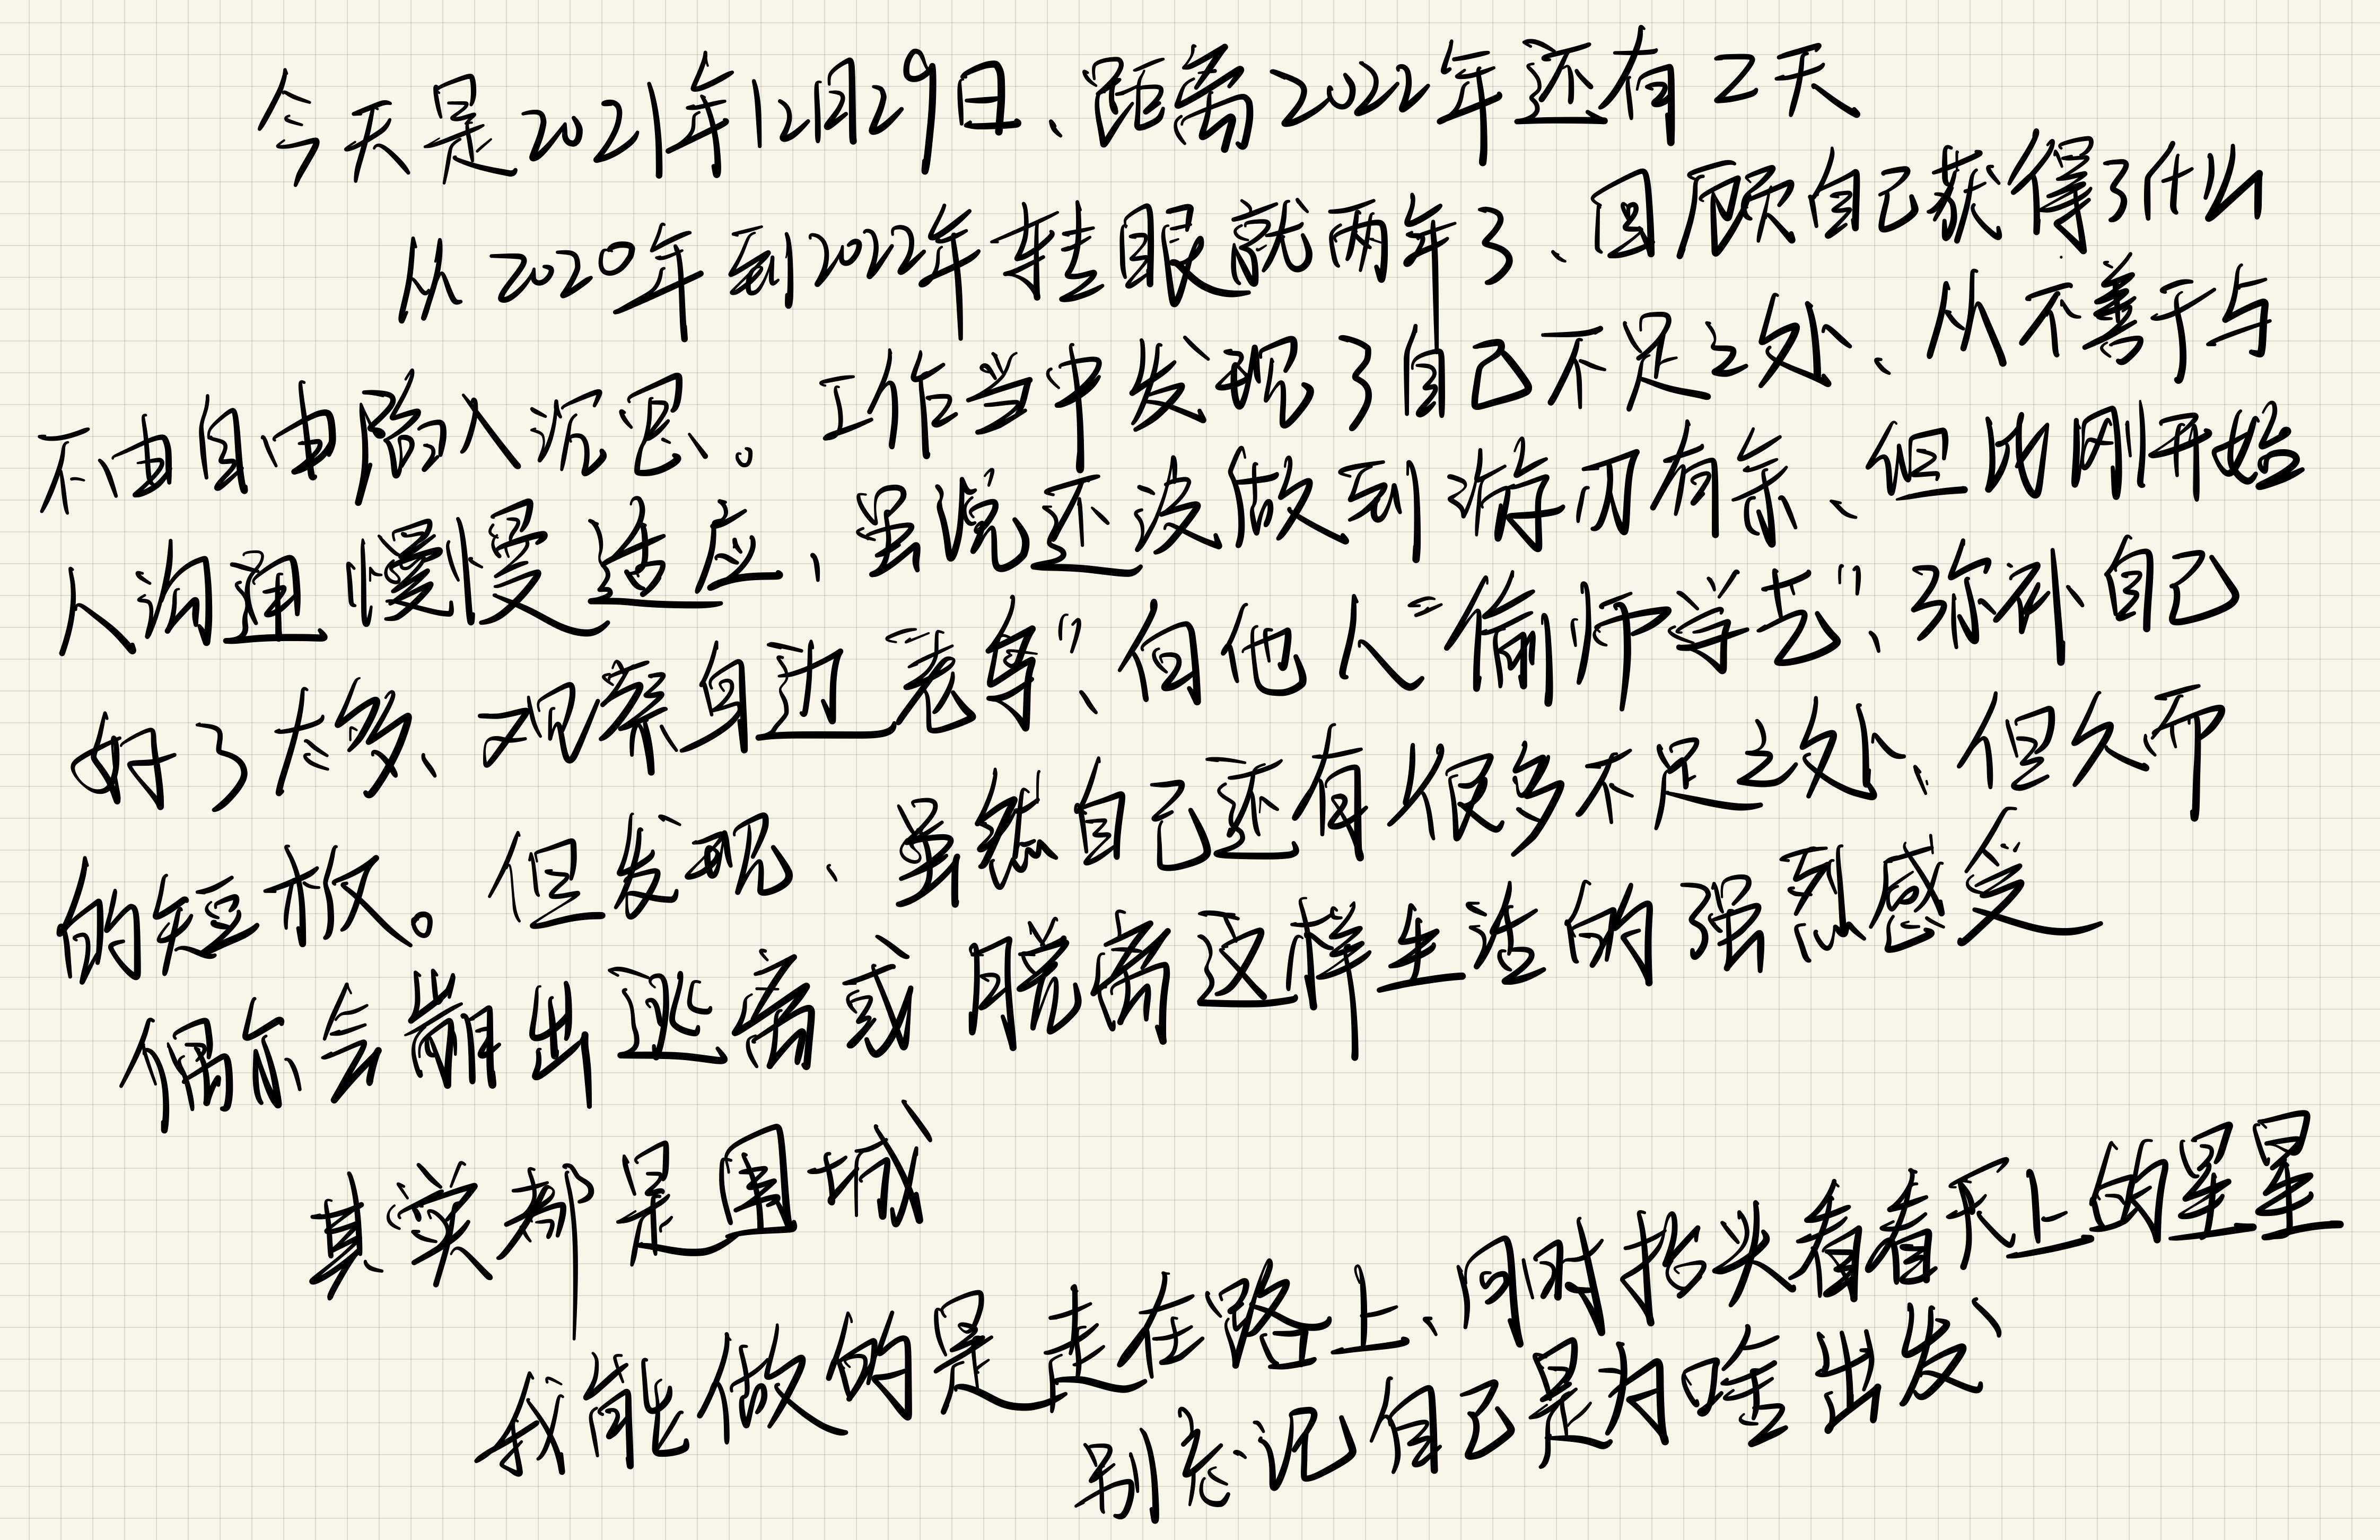 今天是2021年12月29日、距离2022年还有2天
从2020年到2022年转眼就两年了、回顾自己获得了什么
不由自由陷入沉思。工作当中发现了自己不足之处、从不善于与
人沟通慢慢适应、虽说还没做到游刃有余、但比刚开始
好了太多、观察身边“老导”、向他人“偷师学艺”、弥补自己
的短板。但发现、虽然自己还有很多不足之处、但久而
偶尔会萌出逃离或脱离这样生活的强烈感受
其实都是围城
我能做的是走在路上、同时抬头看看天上的星星
别忘记自己是为啥出发